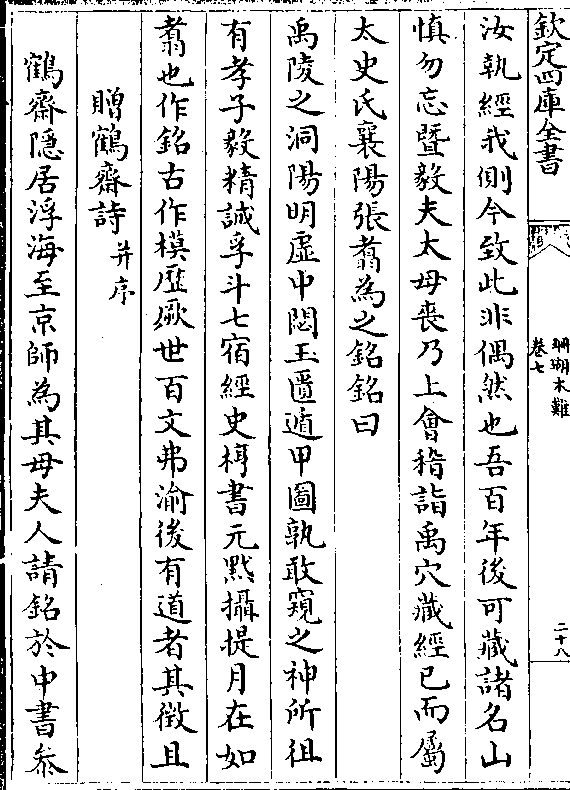 欽定四庫全書
珊瑚木難
卷七
二十八
汝執經我側今致此非偶然也吾百年後可藏諸名山
慎勿忘暨毅夫太母喪乃上會稽詣禹穴藏經已而屬
太史氏襄陽張翥為之銘銘曰
禹陵之洞陽明虛中閟玉匱遁甲圖孰敢窺之神所徂
有孝子毅精誠孚斗七宿經史梓書元黓攝提月在如
翥也作銘古作模歷厥世百文弗渝後有道者其徵且
贈鶴齋詩并序
鶴齋隱居浮海至京師為其母夫人請銘於中書叅